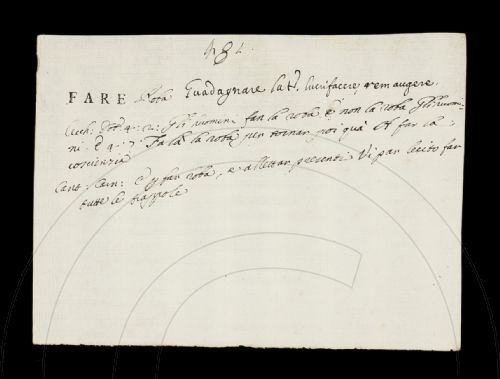 FARE Roba Guadagnare Lat. lucrifacere, rem augere.
Cecch: Dot. 4. 2. Gl'huomini fan la roba, e non la roba gl'huomi
ni. E 4. 7. Fa la la roba per tornar poi qua a far la
coscienzia
Cant. Carn: e p far roba, e allettar presenti Vi par lecito far
tutte le trappole